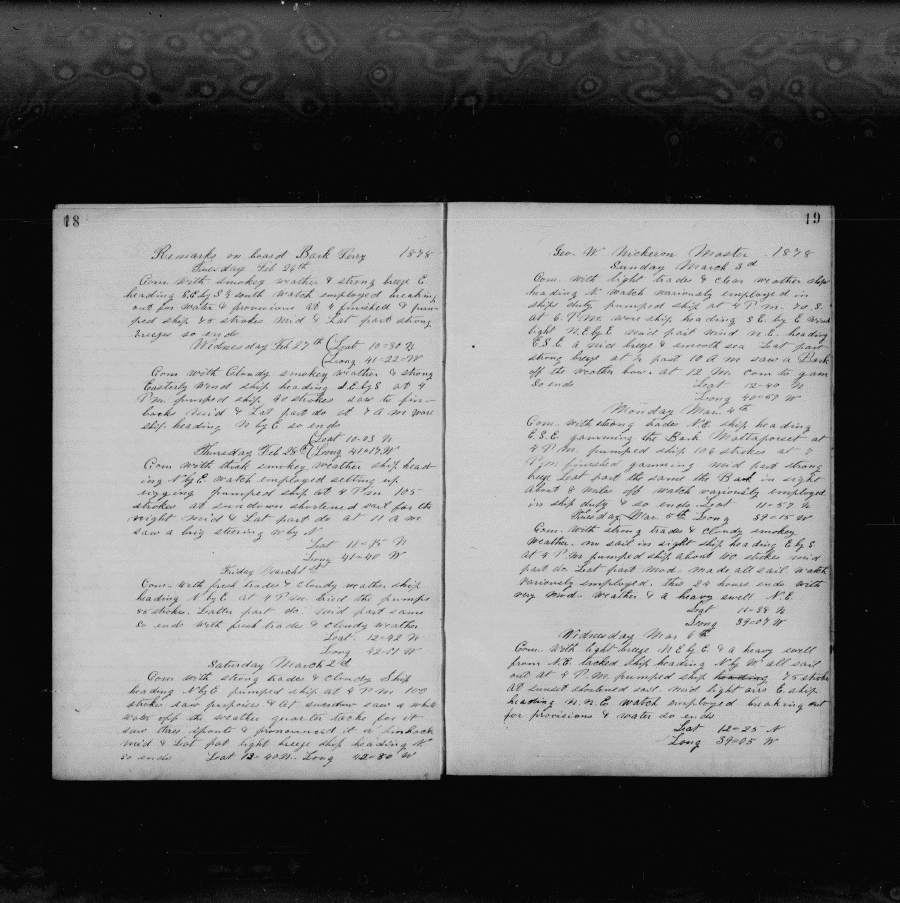 18
Remarks on board Bark Perry 1878
Tuesday Feb 26th
Com with smokey weather & strong breeze E
heading S.E. by S & south watch employed breaking
out for water & provisions at 4 finished & pum-
ped ship 45 strokes mid & Lat part strong
breezes so ends
Wednesday Feb 27th (Lat 10=30 N
(Long 41=22=W
Com with Cloudy smokey weather & strong
Easterly wind ship heading S.E. by S at 4
P.m. pumped ship 40 strokes saw to fin-
backs mid & Lat part do at 7 a m wore
ship heading N by E so ends
(Lat 10=03 N
Thursday Feb 28th (Long 41=17 W
Com with thick smokey weather ship head-
ing N by E. watch employed setting up
rigging pumped ship at 4 P m 105
strokes at sundown shortened sail for the
night mid & Lat part do at 11 a m
saw a brig steering W by N
Lat 11=15 N
Long 41=40 W
Friday March 1st
Com. with fresh trades & cloudy weather ship
heading N by E. at 4 P.M. tried the pumps
85 stokes. Latter part do. mid part same
so ends with fresh trades & cloudy weather
Lat. 12=42 N
Long 42=01 W
Saturday March 2d
Com with strong trades & cloudy Ship
heading N by E pumped ship at 4 P m 100
strokes saw porposes & at sundow saw a whale
off the weather quarter tacks for it
saw three spouts & pronounced it a finback
mid & Lat pat light breeze ship heading N
so ends Lat 13=40 N. Long 42=30 W
19
Geo. W. Nickerson Master 1878
Sunday March 3d
Com. with light trades & clear weather ship
heading N. watch variously employed in
ships duty pumped ship at 4 P m 80 S.
at 6. P.M. wore ship heading S E. by E wind
light N.E by E mid part wind N.E. heading
E.S.E a nice breeze & smooth sea Lat part
strong breeze at ½ past 10 A m saw a Bark
off the weather bow. at 12 M. com to gam
So ends Lat 12=40 N
Long 40=57 W
Monday Mar. 4th
Com. with strong trades N.E. ship heading
E.S.E. gamming the Bark Mattaporset at
4 P m. pumped ship 106 strokes at 7
P.m finished gamming mid part strong
breeze Lat part the same the Bark in sight
about 8 miles off watch variously employed
in ship duty & so ends Lat 11=57 N
Tuesday Mar. 5th Long 39=15 W
Com. with strong trades & cloudy smokey
weather. no sail in sight ship heading E by S
at 4 P.M. pumped ship about 110 stokes mid
part do. Lat part Mod. made all sail watch
variously employed. this 24 hours ends with
very mod. weather & a heavy swell N.E.
Lat 11=38 N
Long 39=07 W
Wednesday Mar 6th
Com. with light breeze N E by E. & a heavy swell
from N.E. tacked ship heading N by W all sail
out at 4 P.M. pumped ship heading 75 stroke
at sunset shortened sail. mid light airs E. ship
heading N.N.E. watch employed breaking out
for provisions & water so ends
Lat 12=25 N
Long 39=05 W